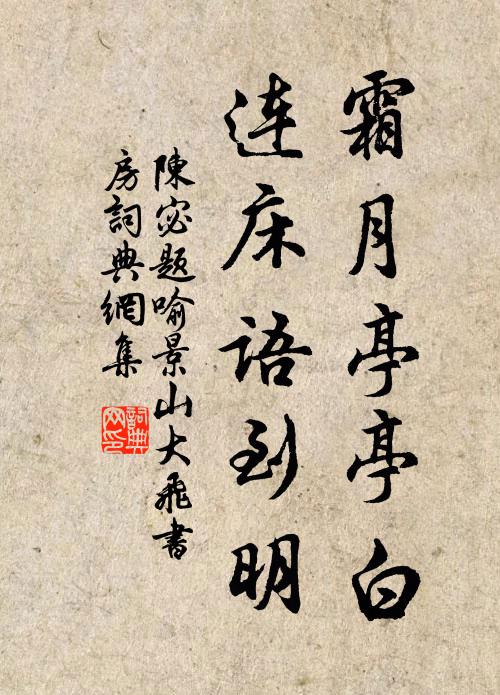 霜月亭亭白
连床語到明
陳宓題喻景山大飛書
房詞典網集
詞典
网印